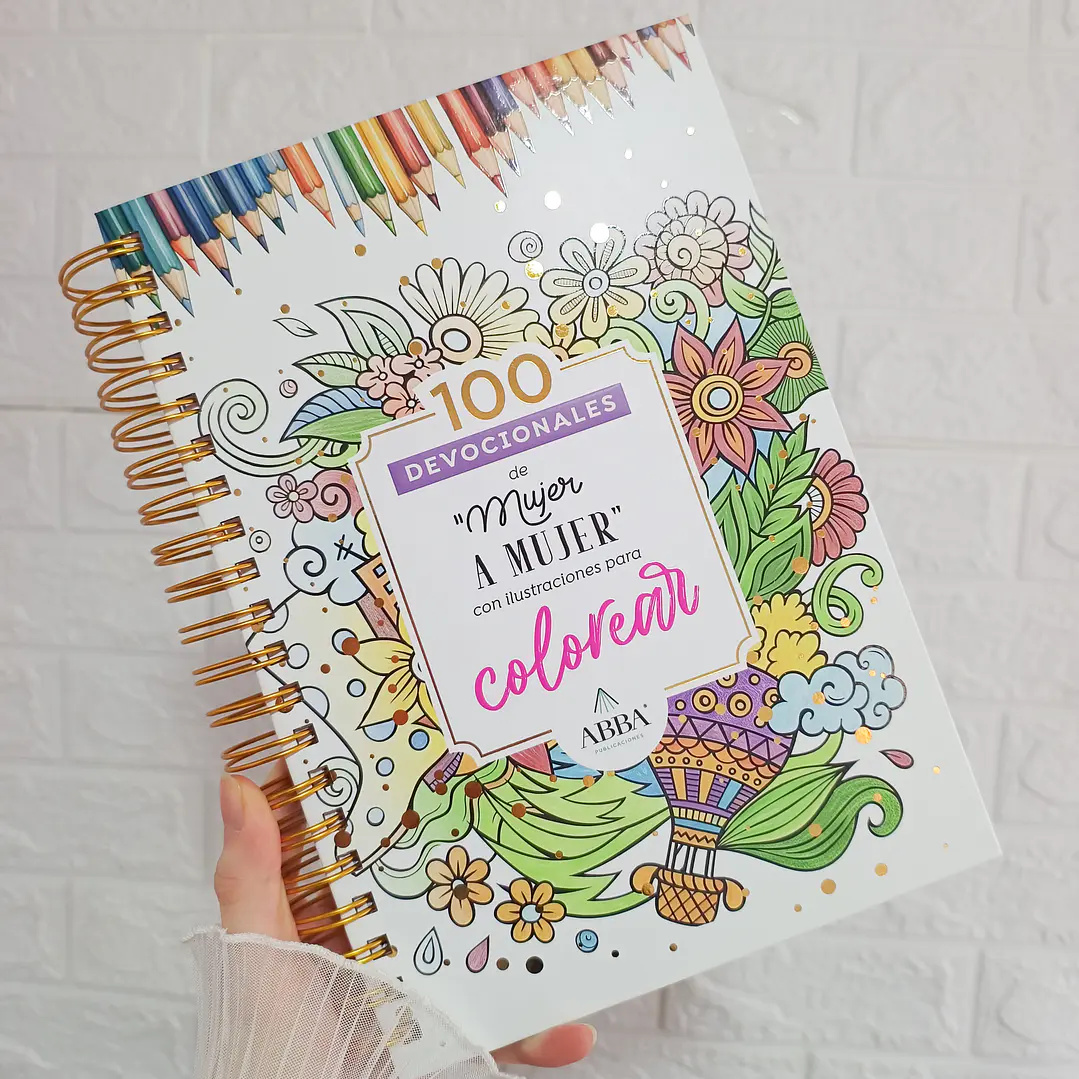 100
DEVOCIONALES
de
"Mujer
A MUJER"
con ilustraciones para
colorear
ABBA®
PUBLICACIONES